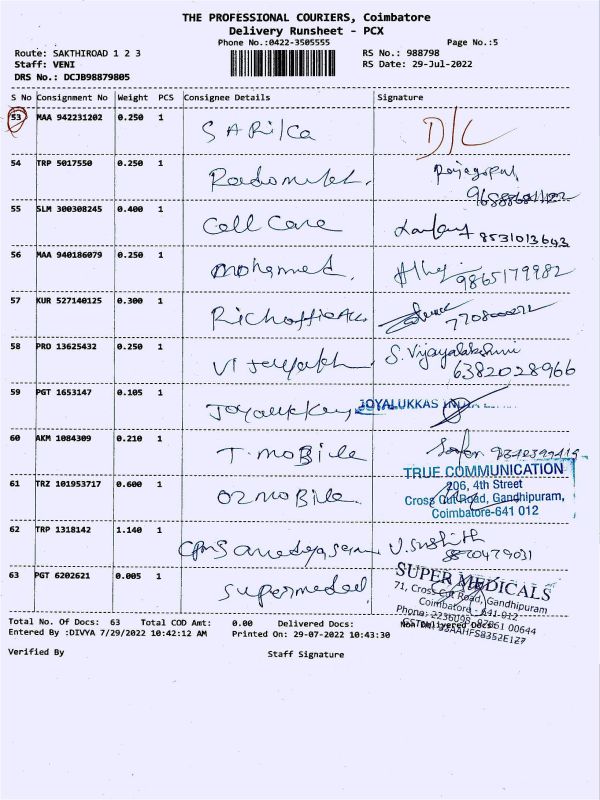 THE PROFESSIONAL COURIERS, Coimbatore
Delivery Runsheet - PCX
Phone No.:0422-3505555 Page No.:5
Route: SAKTHIROAD 1 2 3 RS No.: 988798
Staff: VENI RS Date: 29-Jul-2022
DRS No.: DCJB98879805
S No Consignment No Weight PCS Consignee Details Signature
53 MAA 942231202 0.250 1 SARIKA D/L
54 TRP 5017550 0.250 1 Rajagopal
55 SLM 300308245 0.400 1 Cell Care 8531013643
56 MAA 940186079 0.250 1 mohammed. 9865179982
57 KUR 527140125 0.300 1
58 PRO 13625432 0.250 1 S. Vijayalakshmi
6382028966
59 PGT 1653147 0.105 1 JOYALUKKAS
60 AKM 1084309 0.210 1 T-moBile
TRUE COMMUNICATION
61 TRZ 101953717 0.600 1 OZ MOBile 206, 4th Street
Cross Cut Road, Gandhipuram,
Coimbatore-641 012
62 TRP 1318142 1.140 1 U.Sushith
63 PGT 6202621 0.005 1 supermedical SUPER MEDICALS
71, Cross Cut Road, Gandhipuram
Coimbatore - 641 012
Total No. Of Docs: 63 Total COD Amt: 0.00 Delivered Docs: Non Delivered Docs:
Entered By :DIVYA 7/29/2022 10:42:12 AM Printed On: 29-07-2022 10:43:30
Verified By Staff Signature